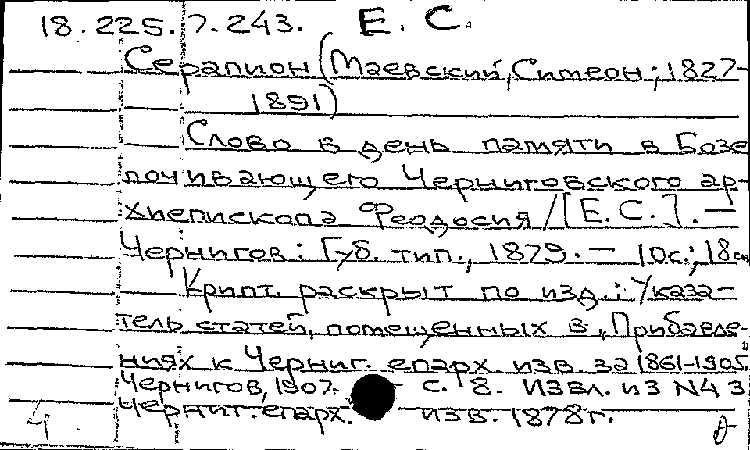 18.225.7.243. Е. С.
Серапион (Маевский, Симеон; 1827-
1891)
Слово в день памяти в Бозе
почивающего Черниговского ар-
хиепископа Феодосия / [Е. С.]. —
Чернигов: Губ. тип., 1879. — 10с.; 18см
Крипт. раскрыт по изд.: Указа-
тель статей, помещенных в „Прибавле-
ниях к Черниг. епарх. изв. за 1861-1905.
Чернигов, 1907. - с. 8. Извл. из №4 3
Черниг. епарх. изв. 1878г.
Ч.